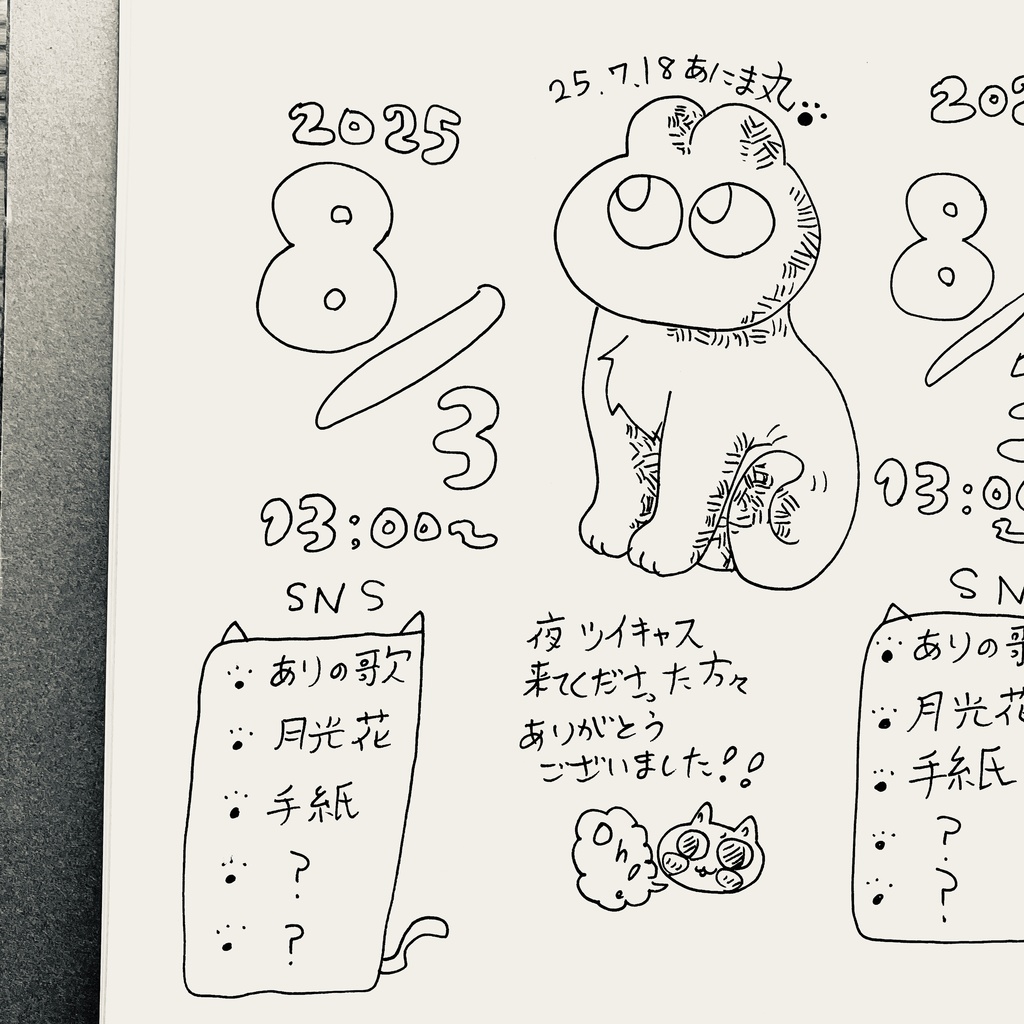 2025
8/3
03:00~
SNS
ありの歌
月光花
手紙
?
?
25.7.18 あにま丸
夜 ツイキャス
来てくださった方々
ありがとう
ございました!!
202
8/
03:00
~
SN
ありの
月光花
手紙
?
?